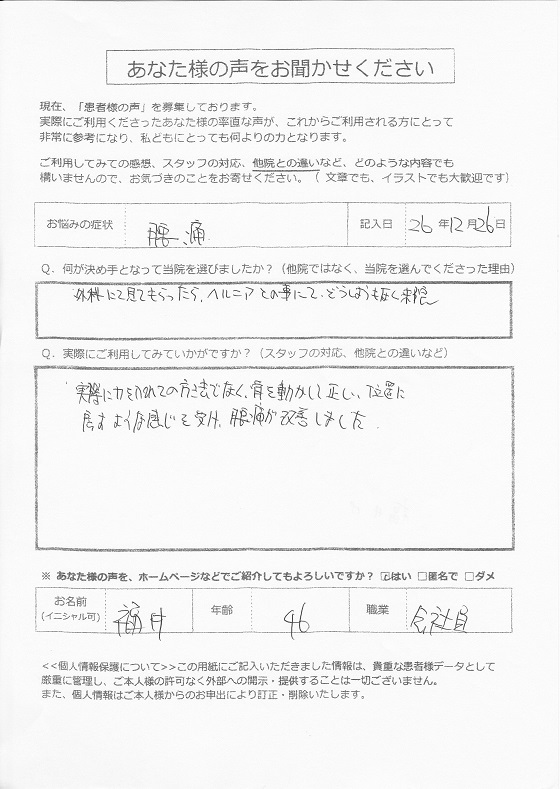 あなた様の声をお聞かせください
現在、「患者様の声」を募集しております。
実際にご利用くださったあなた様の率直な声が、これからご利用される方にとって
非常に参考になり、私どもにとっても何よりの力となります。
ご利用してみての感想、スタッフの対応、他院との違いなど、どのような内容でも
構いませんので、お気づきのことをお寄せください。（ 文章でも、イラストでも大歓迎です）
お悩みの症状 腰痛 記入日 26 年 12 月 26 日
Q．何が決め手となって当院を選びましたか？（他院ではなく、当院を選んでくださった理由）
外科にて見てもらったら、ヘルニアとの事にて、どうしようもなく来院
Q．実際にご利用してみていかがですか？（スタッフの対応、他院との違いなど）
実際に力を入れての方法でなく、骨を動かして正しい位置に
戻すような感じを受け、腰痛が改善しました。
※ あなた様の声を、ホームページなどでご紹介してもよろしいですか？ ☑はい □匿名で □ダメ
お名前 福井 年齢 46 職業 会社員
（イニシャル可）
<<個人情報保護について>>この用紙にご記入いただきました情報は、貴重な患者様データとして
厳重に管理し、ご本人様の許可なく外部への開示・提供することは一切ございません。
また、個人情報はご本人様からのお申出により訂正・削除いたします。